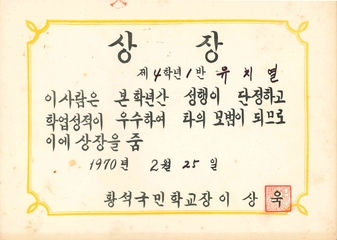 상 장
제 4학년 1반 유치열
이사람은 본학년간 성행이 단정하고
학업성적이 우수하여 타의 모범이 되므로
이에 상장을 줌
1970년 2월 25일
황석국민학교장 이상욱